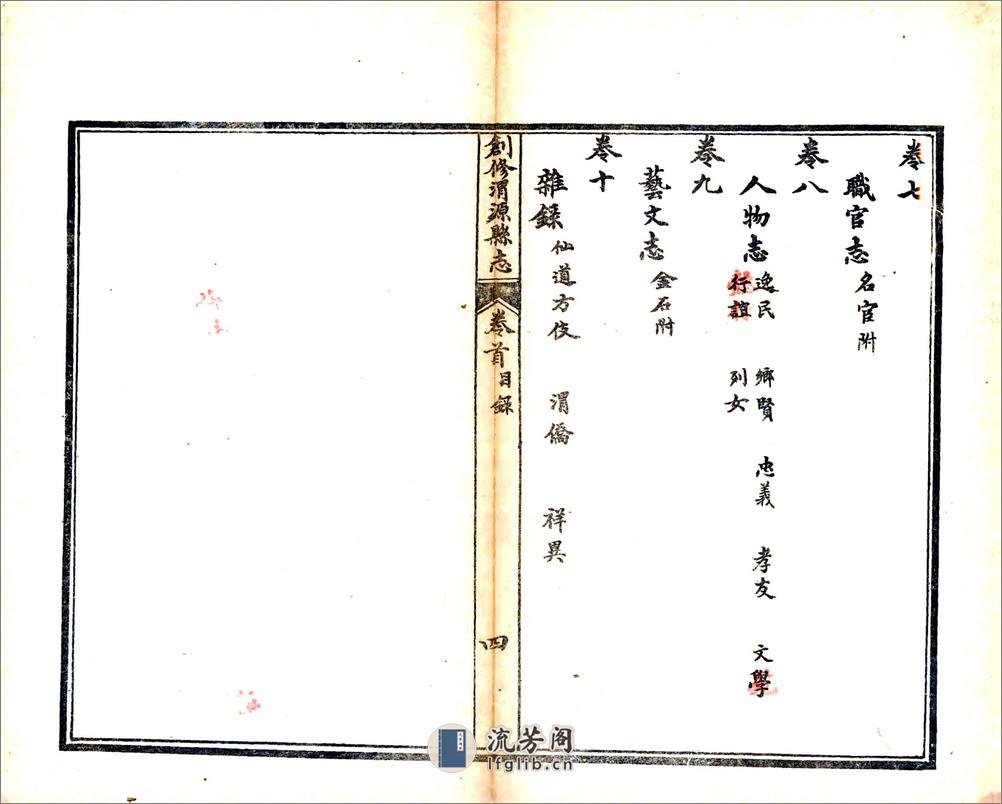 卷七
職官志 名宦附
卷八
人物志 逸民 鄉賢 忠義 孝友 文學
行誼 列女
卷九
藝文志 金石附
卷十
雜錄 仙道方伎 渭僑 祥異
創修渭源縣志 卷首 目錄 四
流芳阁
lfglib.cn